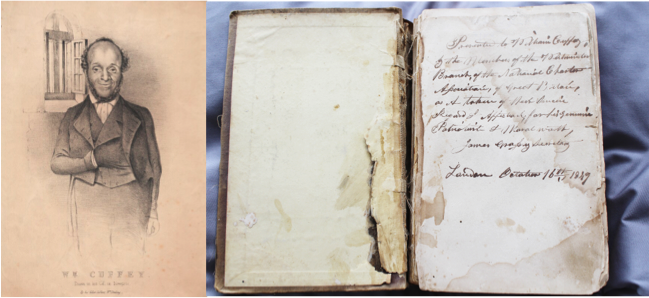 WM CUFFEY
Presented to William Cuffay
by the Members of the Westminster
Branch, of the National Charter
Association, of Great Britain,
as A token of their sincere
Regard & Affection for his genuine
Patriotism & Moral worth,
James Grassby Secretary
London October 16th, 1849